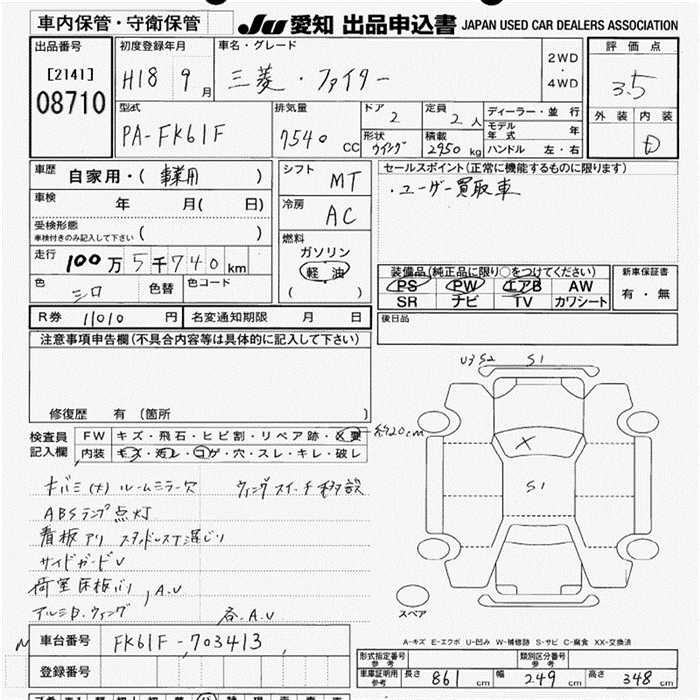 車内保管・守衛保管
JU 愛知 出品申込書 JAPAN USED CAR DEALERS ASSOCIATION
出品番号
[2141]
08710
初度登録年月
H18 9月
車名・グレード
三菱・ファイター
2WD
・
4WD
評価点
3.5
外装 内装
D
型式
PA-FK61F
排気量
7540 CC
ドア
2
定員
2人
形状
ウイング
積載
2950 kg
ディーラー・並行
モデル年式 年
ハンドル 左・右
車歴 自家用・( 事業用 )
車検 年 月( 日)
受検形態
車検付きのみ記入して下さい ( )
走行 100万5千740km
色 シロ 色替 色コード
R券 11010 円 名変通知期限 月 日
シフト MT
冷房 AC
燃料
ガソリン
軽油
( )
セールスポイント(正常に機能するものに限ります)
・ユーザー買取車
装備品(純正品に限り○をつけてください)
PS PW エアB AW
SR ナビ TV カワシート
新車保証書
有・無
後日品
注意事項申告欄(不具合内容等は具体的に記入して下さい)
修復歴 有 (箇所 )
検査員記入欄
FW キズ・飛石・ヒビ割・リペア跡・X要 約20cm
内装 キズ・汚レ・コゲ・穴・スレ・キレ・破レ
キバミ(大) ルームミラー欠 ウィングスイッチ移設
ABSランプ点灯
看板アリ
サイドガードU
荷室床板バリ, A.U
アルミB.ウィング 各.A.U
車台番号 FK61F-703413
登録番号
U3 S2 S1
X
S1
スペア
A-キズ E-エクボ U-凹み W-補修跡 S-サビ C-腐食 XX-交換済
形式指定番号 参考
類別区分番号 参考
車庫証明用 参考 長さ 861 cm 幅 249 cm 高さ 348 cm